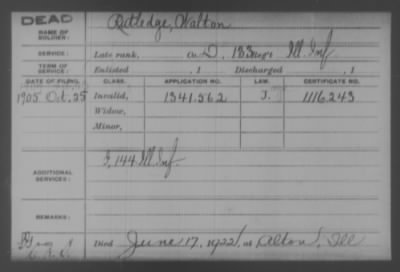 DEAD
NAME OF SOLDIER: Rutledge, Walton
SERVICE: Late rank, Co. D, 133 Reg't Ill. Inf.
TERM OF SERVICE: Enlisted , 1 Discharged , 1
DATE OF FILING. CLASS. APPLICATION NO. LAW. CERTIFICATE NO.
1905 Oct. 25 Invalid, 1341.562 J. 1116.243
Widow,
Minor,
ADDITIONAL SERVICES: F, 144 Ill. Inf.
REMARKS:
Died June 17, 1922, at Alton, Ill